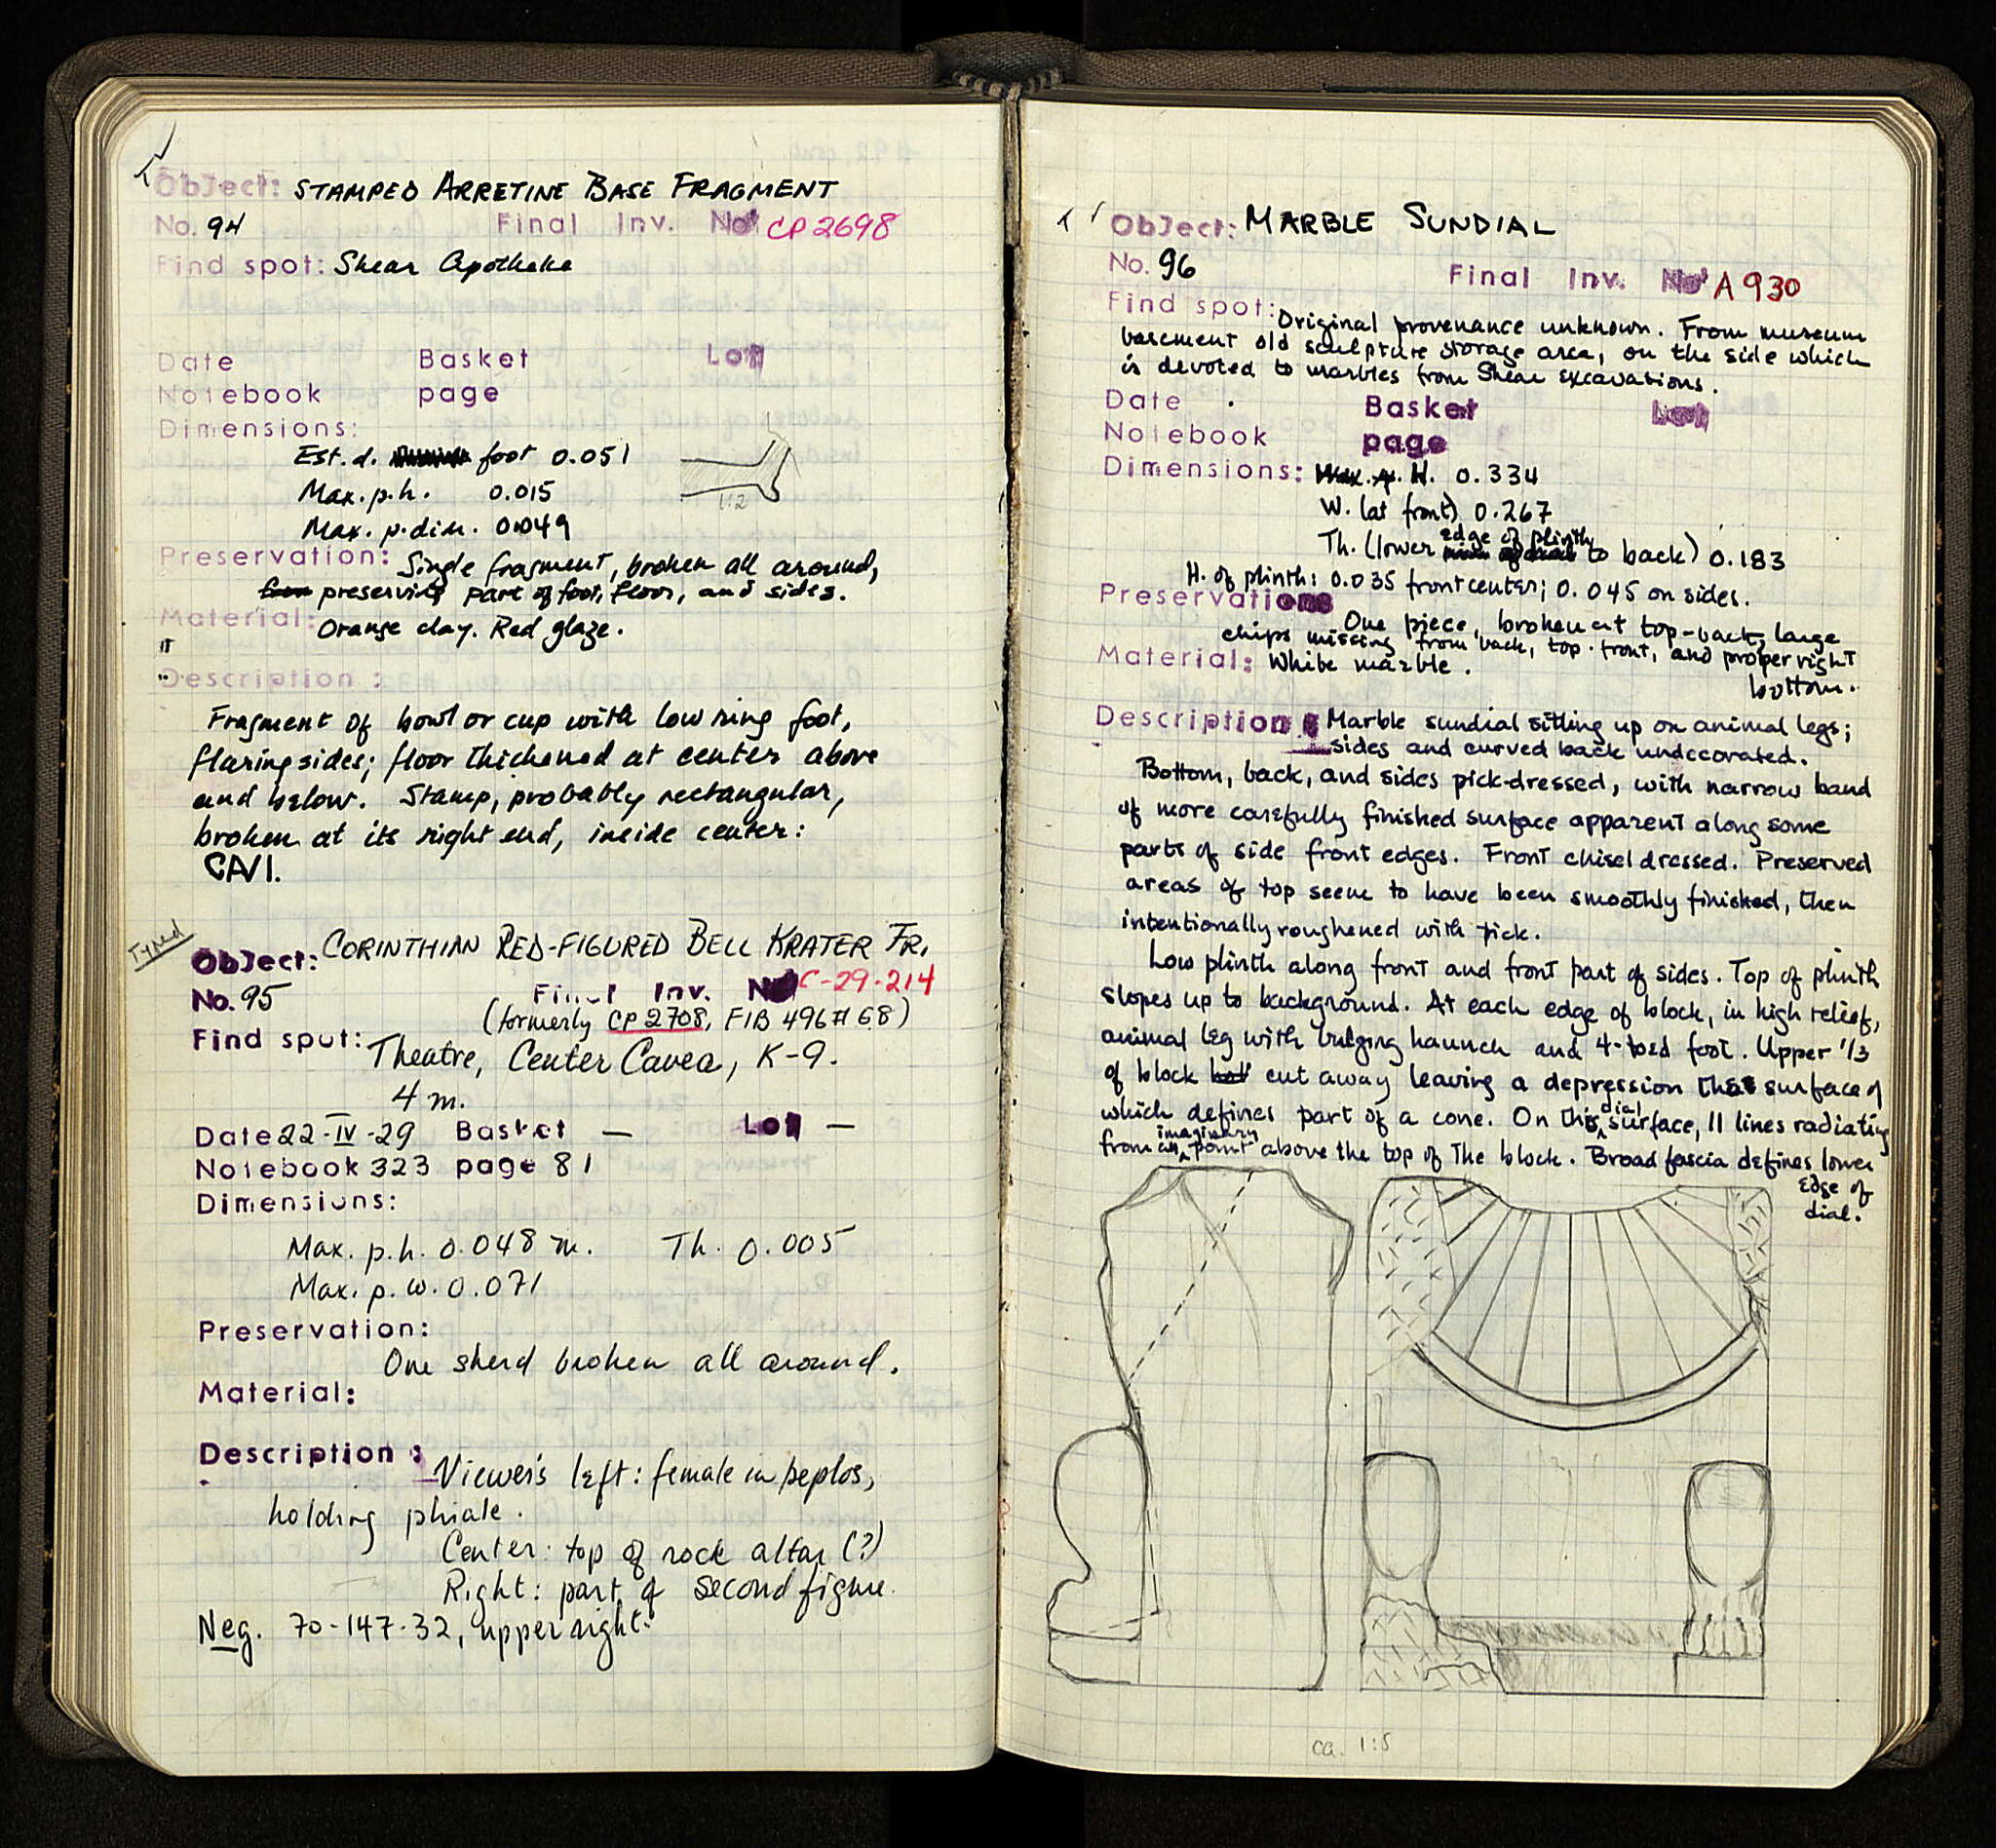 Object: STAMPED ARRETINE BASE FRAGMENT
No. 94 Final Inv. No CP 2698
Find spot: Shear Apotheke
Date Basket Lot
Notebook page
Dimensions:
Est. d. foot 0.051
Max. p.h. 0.015
1:2
Max. p. dim. 0.049
Preservation: Single fragment, broken all around,
preserving part of foot, floor, and sides.
Material: Orange clay. Red glaze.
Description:
Fragment of bowl or cup with low ring foot,
flaring sides; floor thickened at center above
and below. Stamp, probably rectangular,
broken at its right end, inside center:
CAVI.
Typed
Object: CORINTHIAN RED-FIGURED BELL KRATER FR.
No. 95 Final Inv. No C-29-214
(formerly CP 2708, FIB 496 # 68)
Find spot: Theatre, Center Cavea, K-9.
4 m.
Date 22-IV-29 Basket — Lot —
Notebook 323 page 81
Dimensions:
Max. p.h. 0.048 m. Th. 0.005
Max. p. w. 0.071
Preservation:
One sherd broken all around.
Material:
Description: Viewer's left: female in peplos,
holding phiale.
Center: top of rock altar (?)
Right: part of second figure.
Neg. 70-147-32, upper right.
Object: MARBLE SUNDIAL
No. 96
Final Inv. No A 930
Find spot: Original provenance unknown. From museum
basement old sculpture storage area, on the side which
is devoted to marbles from Shear excavations.
Date Basket Lot
Notebook page
Dimensions: Max. p. H. 0.334
W. (at front) 0.267
Th. (lower edge of plinth to back) 0.183
H. of plinth: 0.035 front center; 0.045 on sides.
Preservation One piece, broken at top-back, large
chips missing from back, top-front, and proper right
bottom.
Material: White marble.
Description: Marble sundial sitting up on animal legs;
sides and curved back undecorated.
Bottom, back, and sides pick-dressed, with narrow band
of more carefully finished surface apparent along some
parts of side front edges. Front chisel dressed. Preserved
areas of top seem to have been smoothly finished, then
intentionally roughened with pick.
Low plinth along front and front part of sides. Top of plinth
slopes up to background. At each edge of block, in high relief,
animal leg with bulging haunch and 4-toed foot. Upper 1/3
of block cut away leaving a depression that surface of
which defines part of a cone. On this dial surface, 11 lines radiating
from an imaginary point above the top of the block. Broad fascia defines lower
edge of
dial.
ca. 1:5